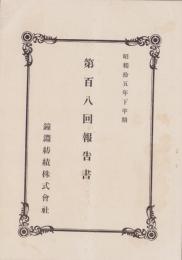 昭和拾五年下半期
第百八回報告書
鐘淵紡績株式會社